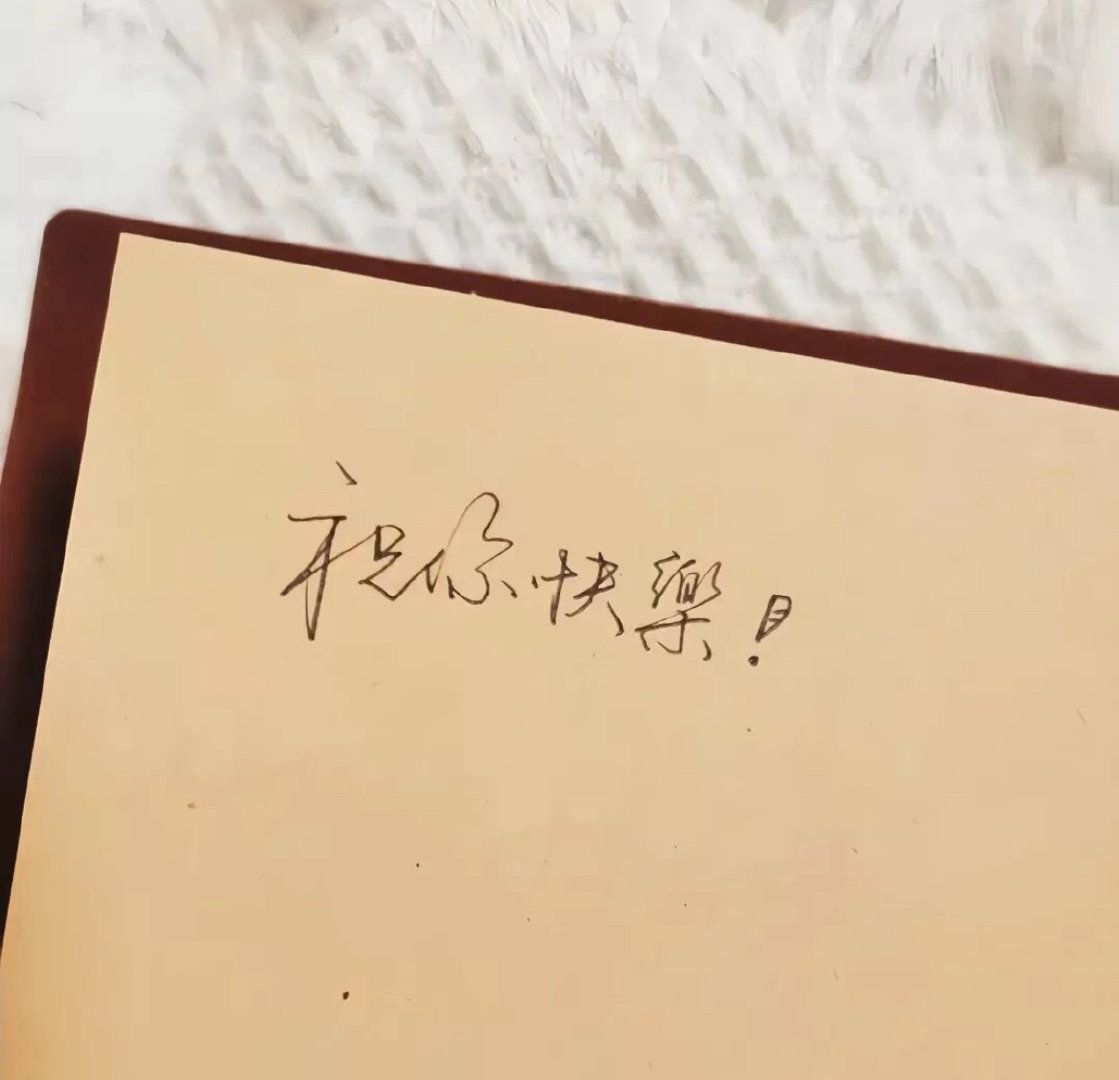 祝你快樂!